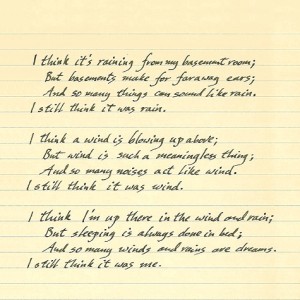 I think it's raining from my basement room;
But basements make for faraway ears;
And so many things can sound like rain.
I still think it was rain.

I think a wind is blowing up above;
But wind is such a meaningless thing;
And so many noises act like wind.
I still think it was wind.

I think I'm up there in the wind and rain;
But sleeping is always done in bed;
And so many winds and rains are dreams.
I still think it was me.